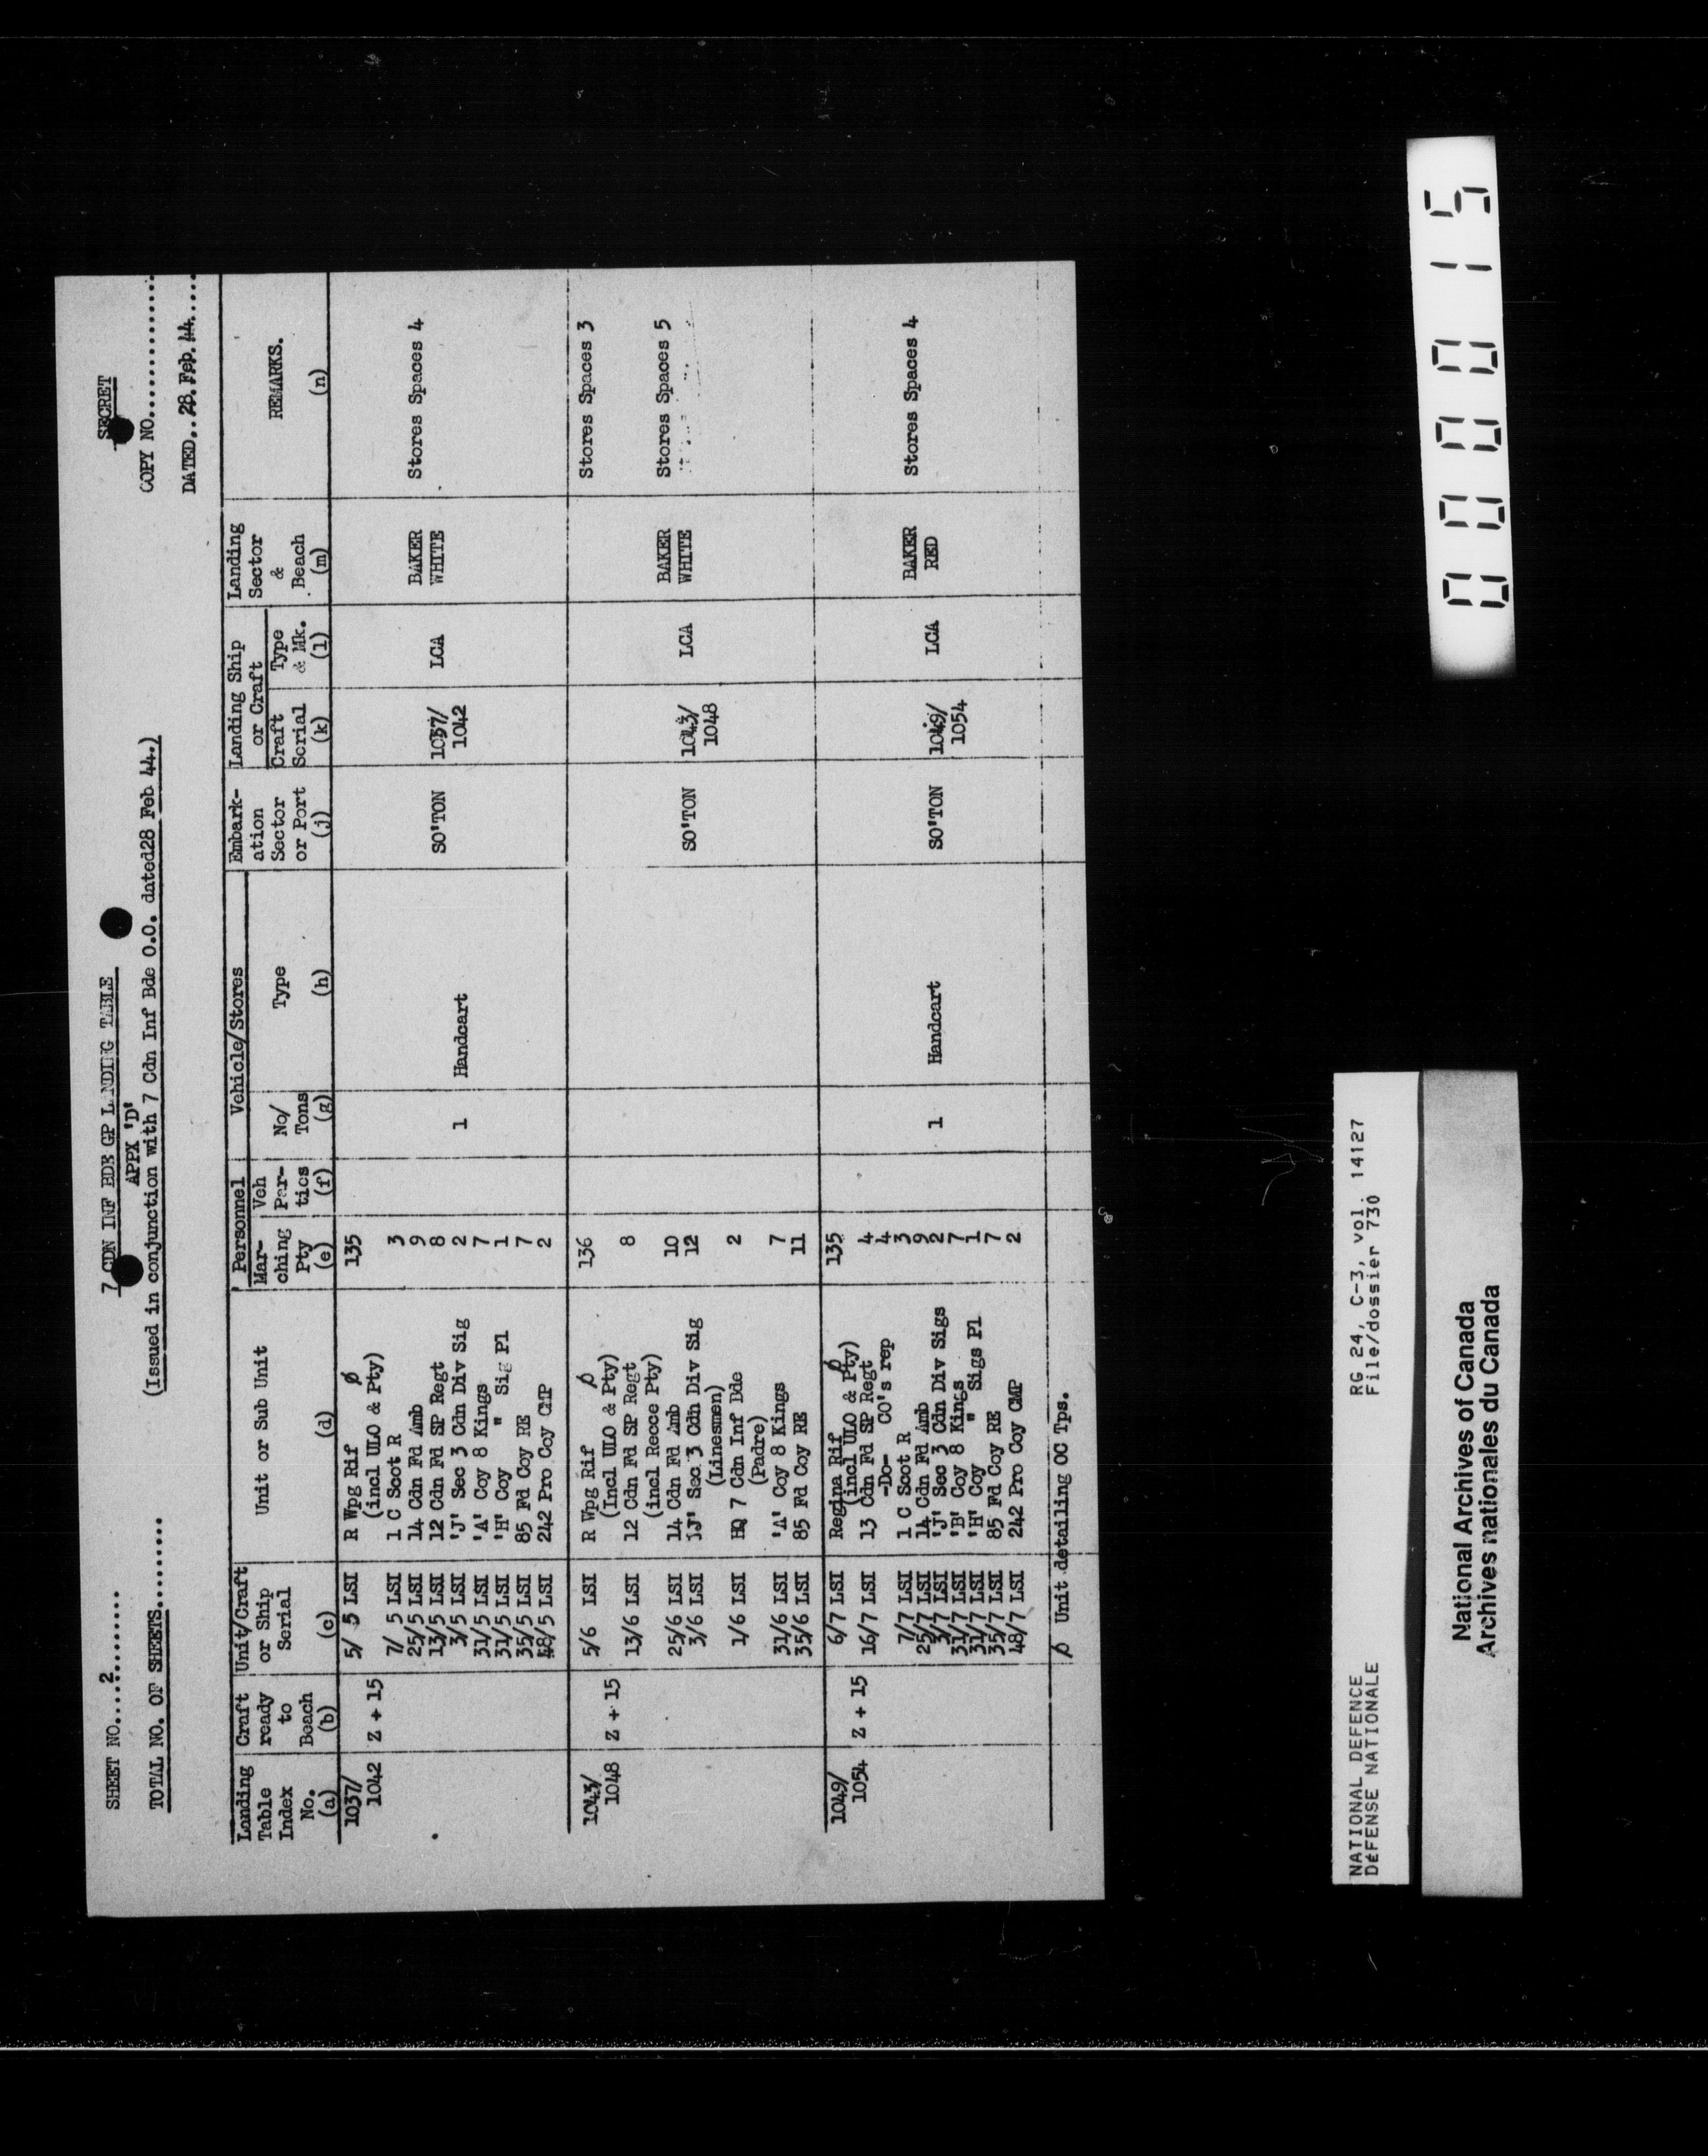 SHEET NO....2.........
TOTAL NO. OF SHEETS.........
7 CDN INF BDE GP LANDING TABLE
APPX 'D'
(Issued in conjunction with 7 Cdn Inf Bde O.O. dated28 Feb 44.)
SECRET
COPY NO..............
DATED..28.Feb.44.....
Landing Table Index No. (a)
Craft ready to Beach (b)
Unit/Craft or Ship Serial (c)
Unit or Sub Unit (d)
Personnel
Mar-ching Pty (e)
Veh Par-ties (f)
Vehicle/Stores
No/ Tons (g)
Type (h)
Embark-ation Sector or Port (j)
Landing Ship or Craft
Craft Serial (k)
Type & Mk. (l)
Landing Sector & Beach (m)
REMARKS. (n)
1037/ 1042 Z + 15
5/ 5 LSI R Wpg Rif ø 135
(incl ULO & Pty)
7/ 5 LSI 1 C Scot R 3
25/5 LSI 14 Cdn Fd Amb 9
13/5 LSI 12 Cdn Fd SP Regt 8
3/5 LSI 'J' Sec 3 Cdn Div Sig 2
31/5 LSI 'A' Coy 8 Kings 7
31/5 LSI 'H' Coy " Sig Pl 1
35/5 LSI 85 Fd Coy RE 7
48/5 LSI 242 Pro Coy CMP 2
1 Handcart SO'TON 1037/ 1042 LCA BAKER WHITE Stores Spaces 4
1043/ 1048 Z + 15
5/6 LSI R Wpg Rif ø 136 Stores Spaces 3
(Incl ULO & Pty)
13/6 LSI 12 Cdn Fd SP Regt 8
(incl Recce Pty)
25/6 LSI 14 Cdn Fd Amb 10
3/6 LSI 'J' Sec 3 Cdn Div Sig 12
(Linesmen)
1/6 LSI HQ 7 Cdn Inf Bde 2
(Padre)
31/6 LSI 'A' Coy 8 Kings 7
35/6 LSI 85 Fd Coy RE 11
SO'TON 1043/ 1048 LCA BAKER WHITE Stores Spaces 5
1049/ 1054 Z + 15
6/7 LSI Regina Rif ø 135
(incl ULO & Pty)
16/7 LSI 13 Cdn Fd SP Regt 4
-Do- CO's rep 4
7/7 LSI 1 C Scot R 3
25/7 LSI 14 Cdn Fd Amb 9
3/7 LSI 'J' Sec 3 Cdn Div Sigs 2
31/7 LSI 'B' Coy 8 Kings 7
31/7 LSI 'H' Coy " Sigs Pl 1
35/7 LSI 85 Fd Coy RE 7
48/7 LSI 242 Pro Coy CMP 2
1 Handcart SO'TON 1049/ 1054 LCA BAKER RED Stores Spaces 4
ø Unit detailing OC Tps.
NATIONAL DEFENCE RG 24, C-3, vol. 14127
DéFENSE NATIONALE File/dossier 730
National Archives of Canada
Archives nationales du Canada
000015